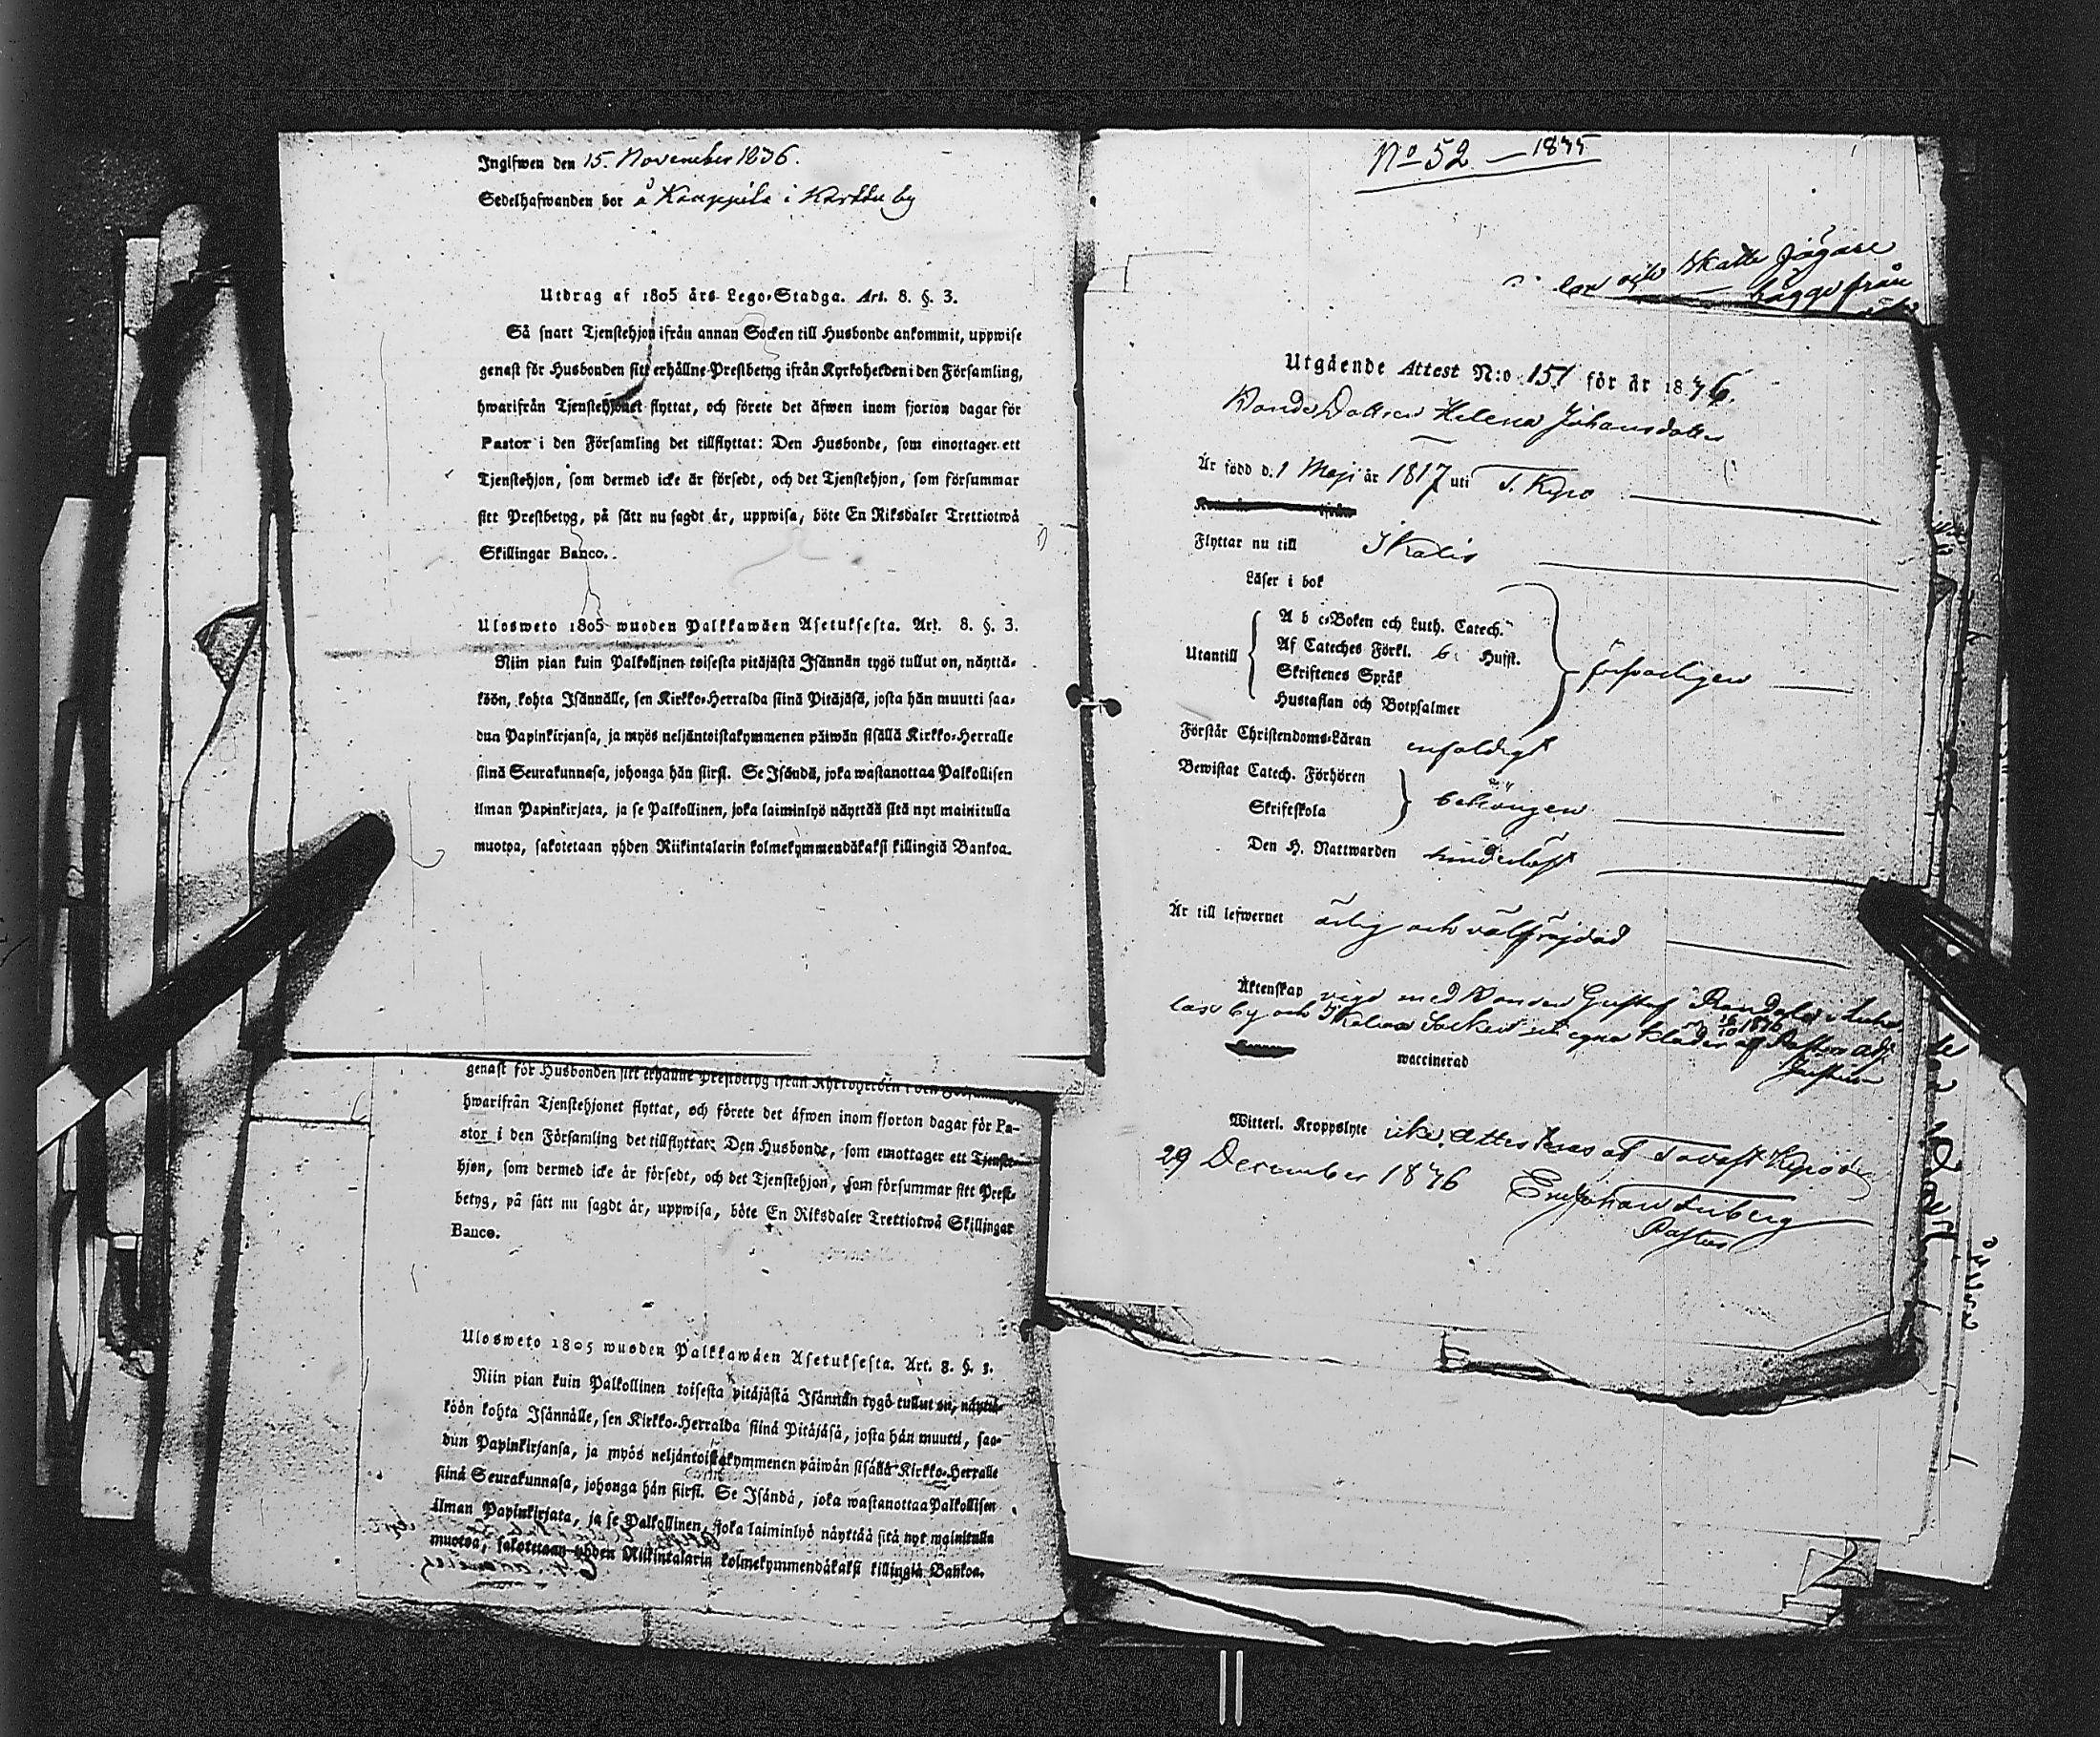 Inglfwen den 15. November 1836.
Sedelhafwanden bor å Kauppila i Karttu by
Utdrag af 1805 års Lego-Stadga. Art. 8. §. 3.
Så snart Tjenstehjon ifrån annan Socken till Husbonde ankommit, uppwise
genast för Husbonden sitt erhållne Prestbetyg ifrån Kyrkoherden i den Församling,
hwarifrån Tjenstehjonet flyttat, och förete det äfwen inom fjorton dagar för
Pastor i den Församling det tillflyttat: Den Husbonde, som emottager ett
Tjenstehjon, som dermed icke är försedt, och det Tjenstehjon, som försummar
sitt Prestbetyg, på sätt nu sagdt är, uppwisa, böte En Riksdaler Trettiotwå
Skillingar Banco.
Ulosweto 1805 wuoden Palkkawäen Asetuksesta. Art. 8. §. 3.
Niin pian kuin Palkollinen toisesta pitäjästä Isännän tygö tullut on, näyttä-
köön, kohta Isännälle, sen Kirkko-Herralda siinä Pitäjäsä, josta hän muutti saa-
dun Papinkirjansa, ja myös neljäntoistakymmenen päiwän sisällä Kirkko-Herralle
siinä Seurakunnasa, johonga hän siirsi. Se Isändä, joka wastanottaa Palkollisen
ilman Papinkirjata, ja se Palkollinen, joka laiminlyö näyttää sitä nyt mainitulla
muotoa, sakotetaan yhden Riikintalarin kolmekymmendäkaksi killingiä Bankoa.
genast för Husbonden sitt erhållne Prestbetyg ifrån Kyrkoherden i den
hwarifrån Tjenstehjonet flyttat, och förete det äfwen inom fjorton dagar för Pa-
stor i den Församling det tillflyttat: Den Husbonde, som emottager ett Tjenste-
hjon, som dermed icke är försedt, och det Tjenstehjon, som försummar sitt Prest-
betyg, på sätt nu sagdt är, uppwisa, böte En Riksdaler Trettiotwå Skillingar
Banco.
Ulosweto 1805 wuoden Palkkawäen Asetuksesta. Art. 8. §. 3.
Niin pian kuin Palkollinen toisesta pitäjästä Isännän tygö tullut on, näyttä-
köön kohta Isännälle, sen Kirkko-Herralda siinä Pitäjäsä, josta hän muutti, saa-
dun Papinkirjansa, ja myös neljäntoistakymmenen päiwän sisällä Kirkko-Herralle
siinä Seurakunnasa, johonga hän siirsi. Se Isändä, joka wastanottaa Palkollisen
ilman Papinkirjata, ja se Palkollinen, joka laiminlyö näyttää sitä nyt mainitulla
muotoa, sakotetaan yhden Riikintalarin kolmekymmendäkaksi killingiä Bankoa.
No 52 — 1845
Skatte Jägare
från
Utgående Attest N:o 151 för år 1846.
Bonde Dottren Helena Johansdotter
Är född d. 1 Maji år 1817 uti T. Kyro
Flyttar nu till Ikalis
Läser i bok
Utantill
A b c-Boken och Luth. Catech.
Af Cateches Förkl. 6 Hufst.
Skriftenes Språk
Hustaflan och Botpsalmer
försvarligen
Förstår Christendoms-Läran enfaldigt
Bewistat Catech. Förhören
Skriftskola
behörigen
Den H. Nattwarden hinderlöst
Är till lefwernet ärlig och välfrejdad
Äktenskap vigd med Bonden Gustaf
by och Ikalis Socken i egna kläder af Pastors Adj.
waccinerad
Witterl. Kroppslyte icke, attesteras af Tavast Kyro den
29 December 1846
Eric Johan Friberg
Pastor